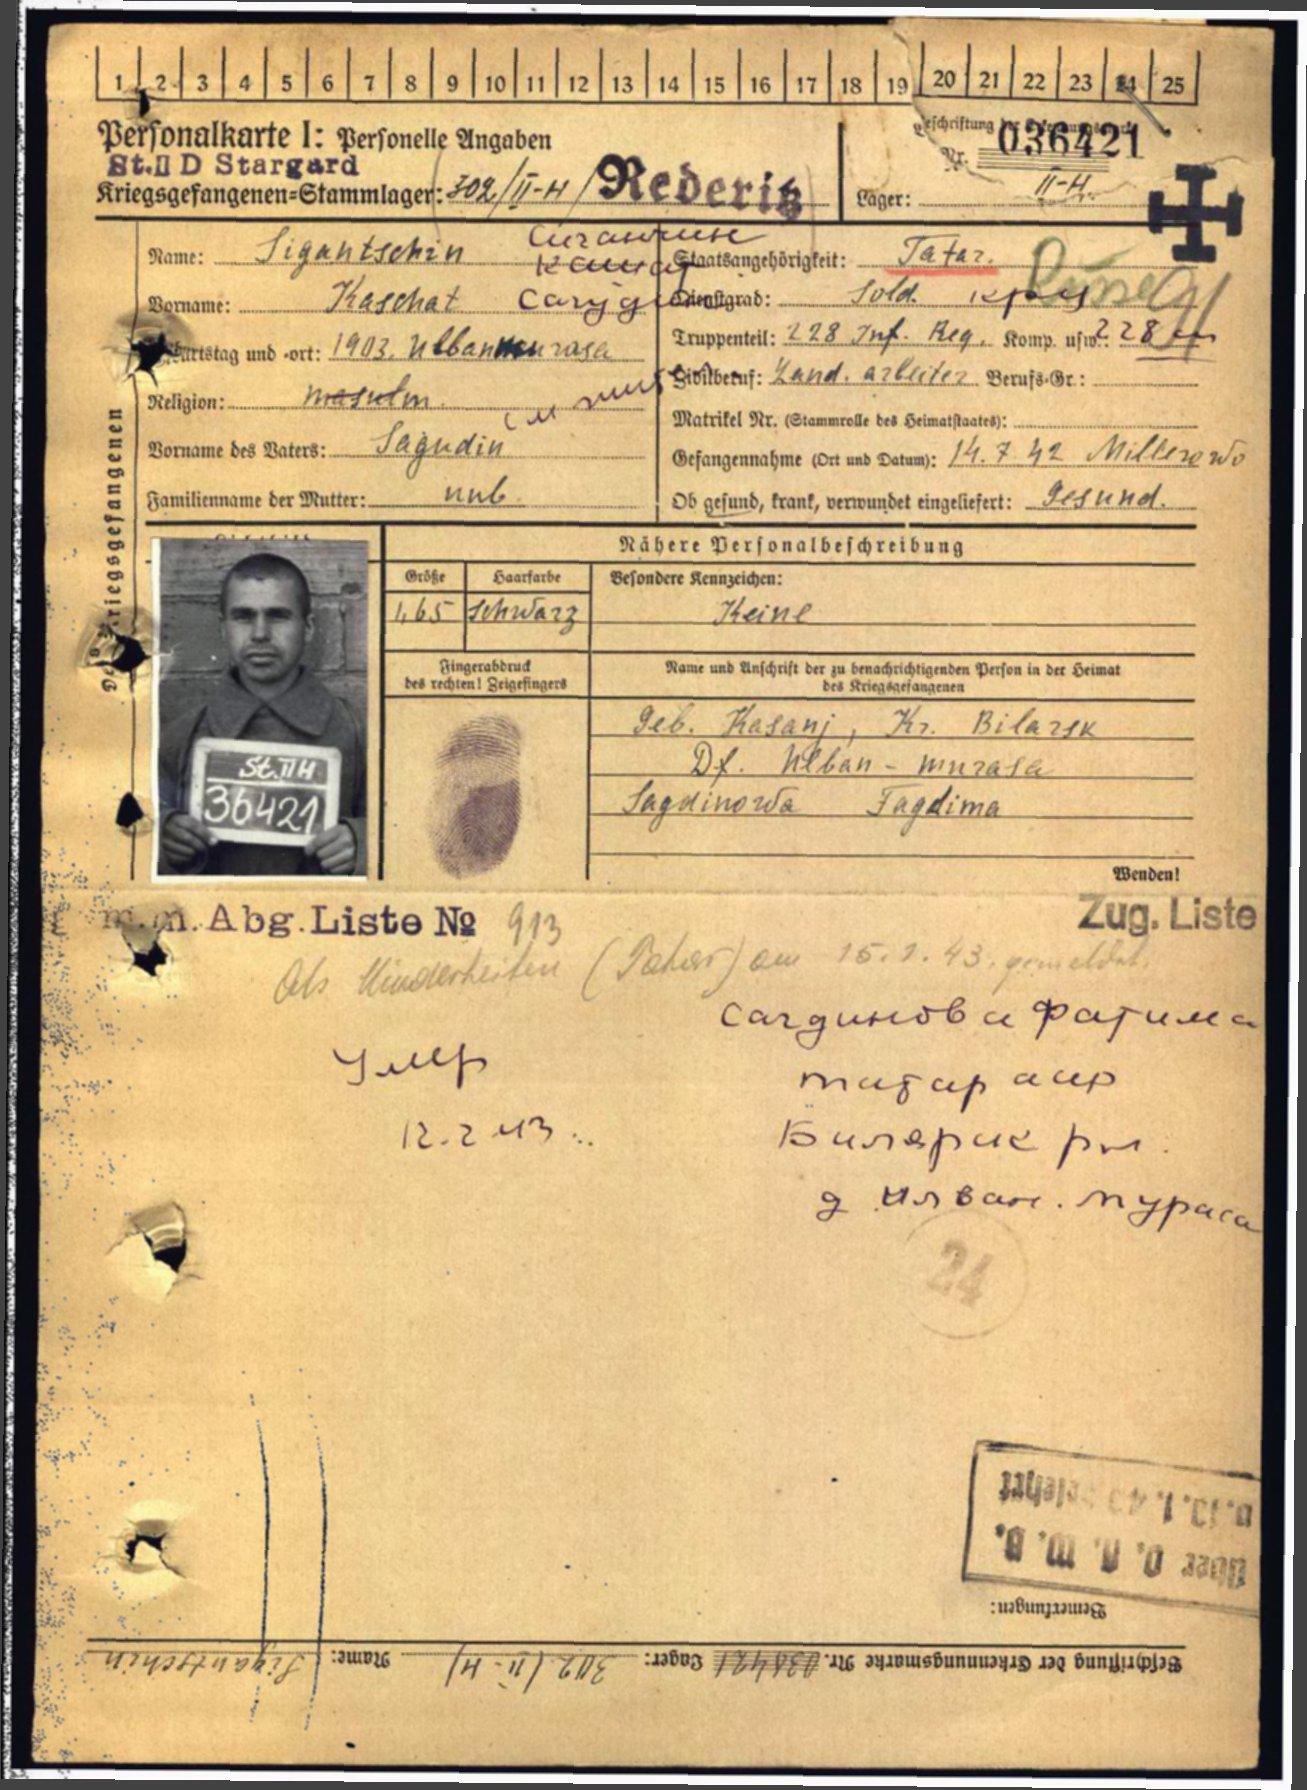 1 2 3 4 5 6 7 8 9 10 11 12 13 14 15 16 17 18 19 20 21 22 23 24 25
Personalkarte I: Personelle Angaben
St.II D Stargard
Kriegsgefangenen=Stammlager: 302/II-H/ Rederitz
Beschriftung der Erkennungsmarke
Nr. 036421
Lager: II-H.
Des Kriegsgefangenen
Name: Sigantschin
Сиганшин
Vorname: Kaschat
Сагудин
Geburtstag und -ort: 1903. Ulban murasa
Religion: masulm.
Vorname des Vaters: Sagudin
Familienname der Mutter: unb.
Staatsangehörigkeit: Tatar.
Russe
Dienstgrad: Sold.
Truppenteil: 228 Inf. Reg. Komp. usw.: 228
Zivilberuf: Land. arbeiter Berufs-Gr.:
Matrikel Nr. (Stammrolle des Heimatstaates):
Gefangennahme (Ort und Datum): 14. 7 42 Millerowo
Ob gesund, krank, verwundet eingeliefert: Gesund.
St. II H
36421
Nähere Personalbeschreibung
Größe Haarfarbe Besondere Kennzeichen:
1,65 schwarz Keine
Fingerabdruck
des rechten! Zeigefingers
Name und Anschrift der zu benachrichtigenden Person in der Heimat
des Kriegsgefangenen
Geb. Kasanj, Kr. Bilarsk
Df. Ulban - murasa
Sagdinowa Fagdima
Wenden!
m.m. Abg. Liste № 913
Zug. Liste
Als Minderheiten (Tatar) am 15.1.43. gemeldet.
Сагдинова Фатима
татар аср
Билярск рн.
д Илван. мураса
Умер
12.2 43
24
über O. K. W. B.
Bemerkungen:
Beschriftung der Erkennungsmarke Nr. 036421 Lager: 302/II-H/ Name: Sigantschin